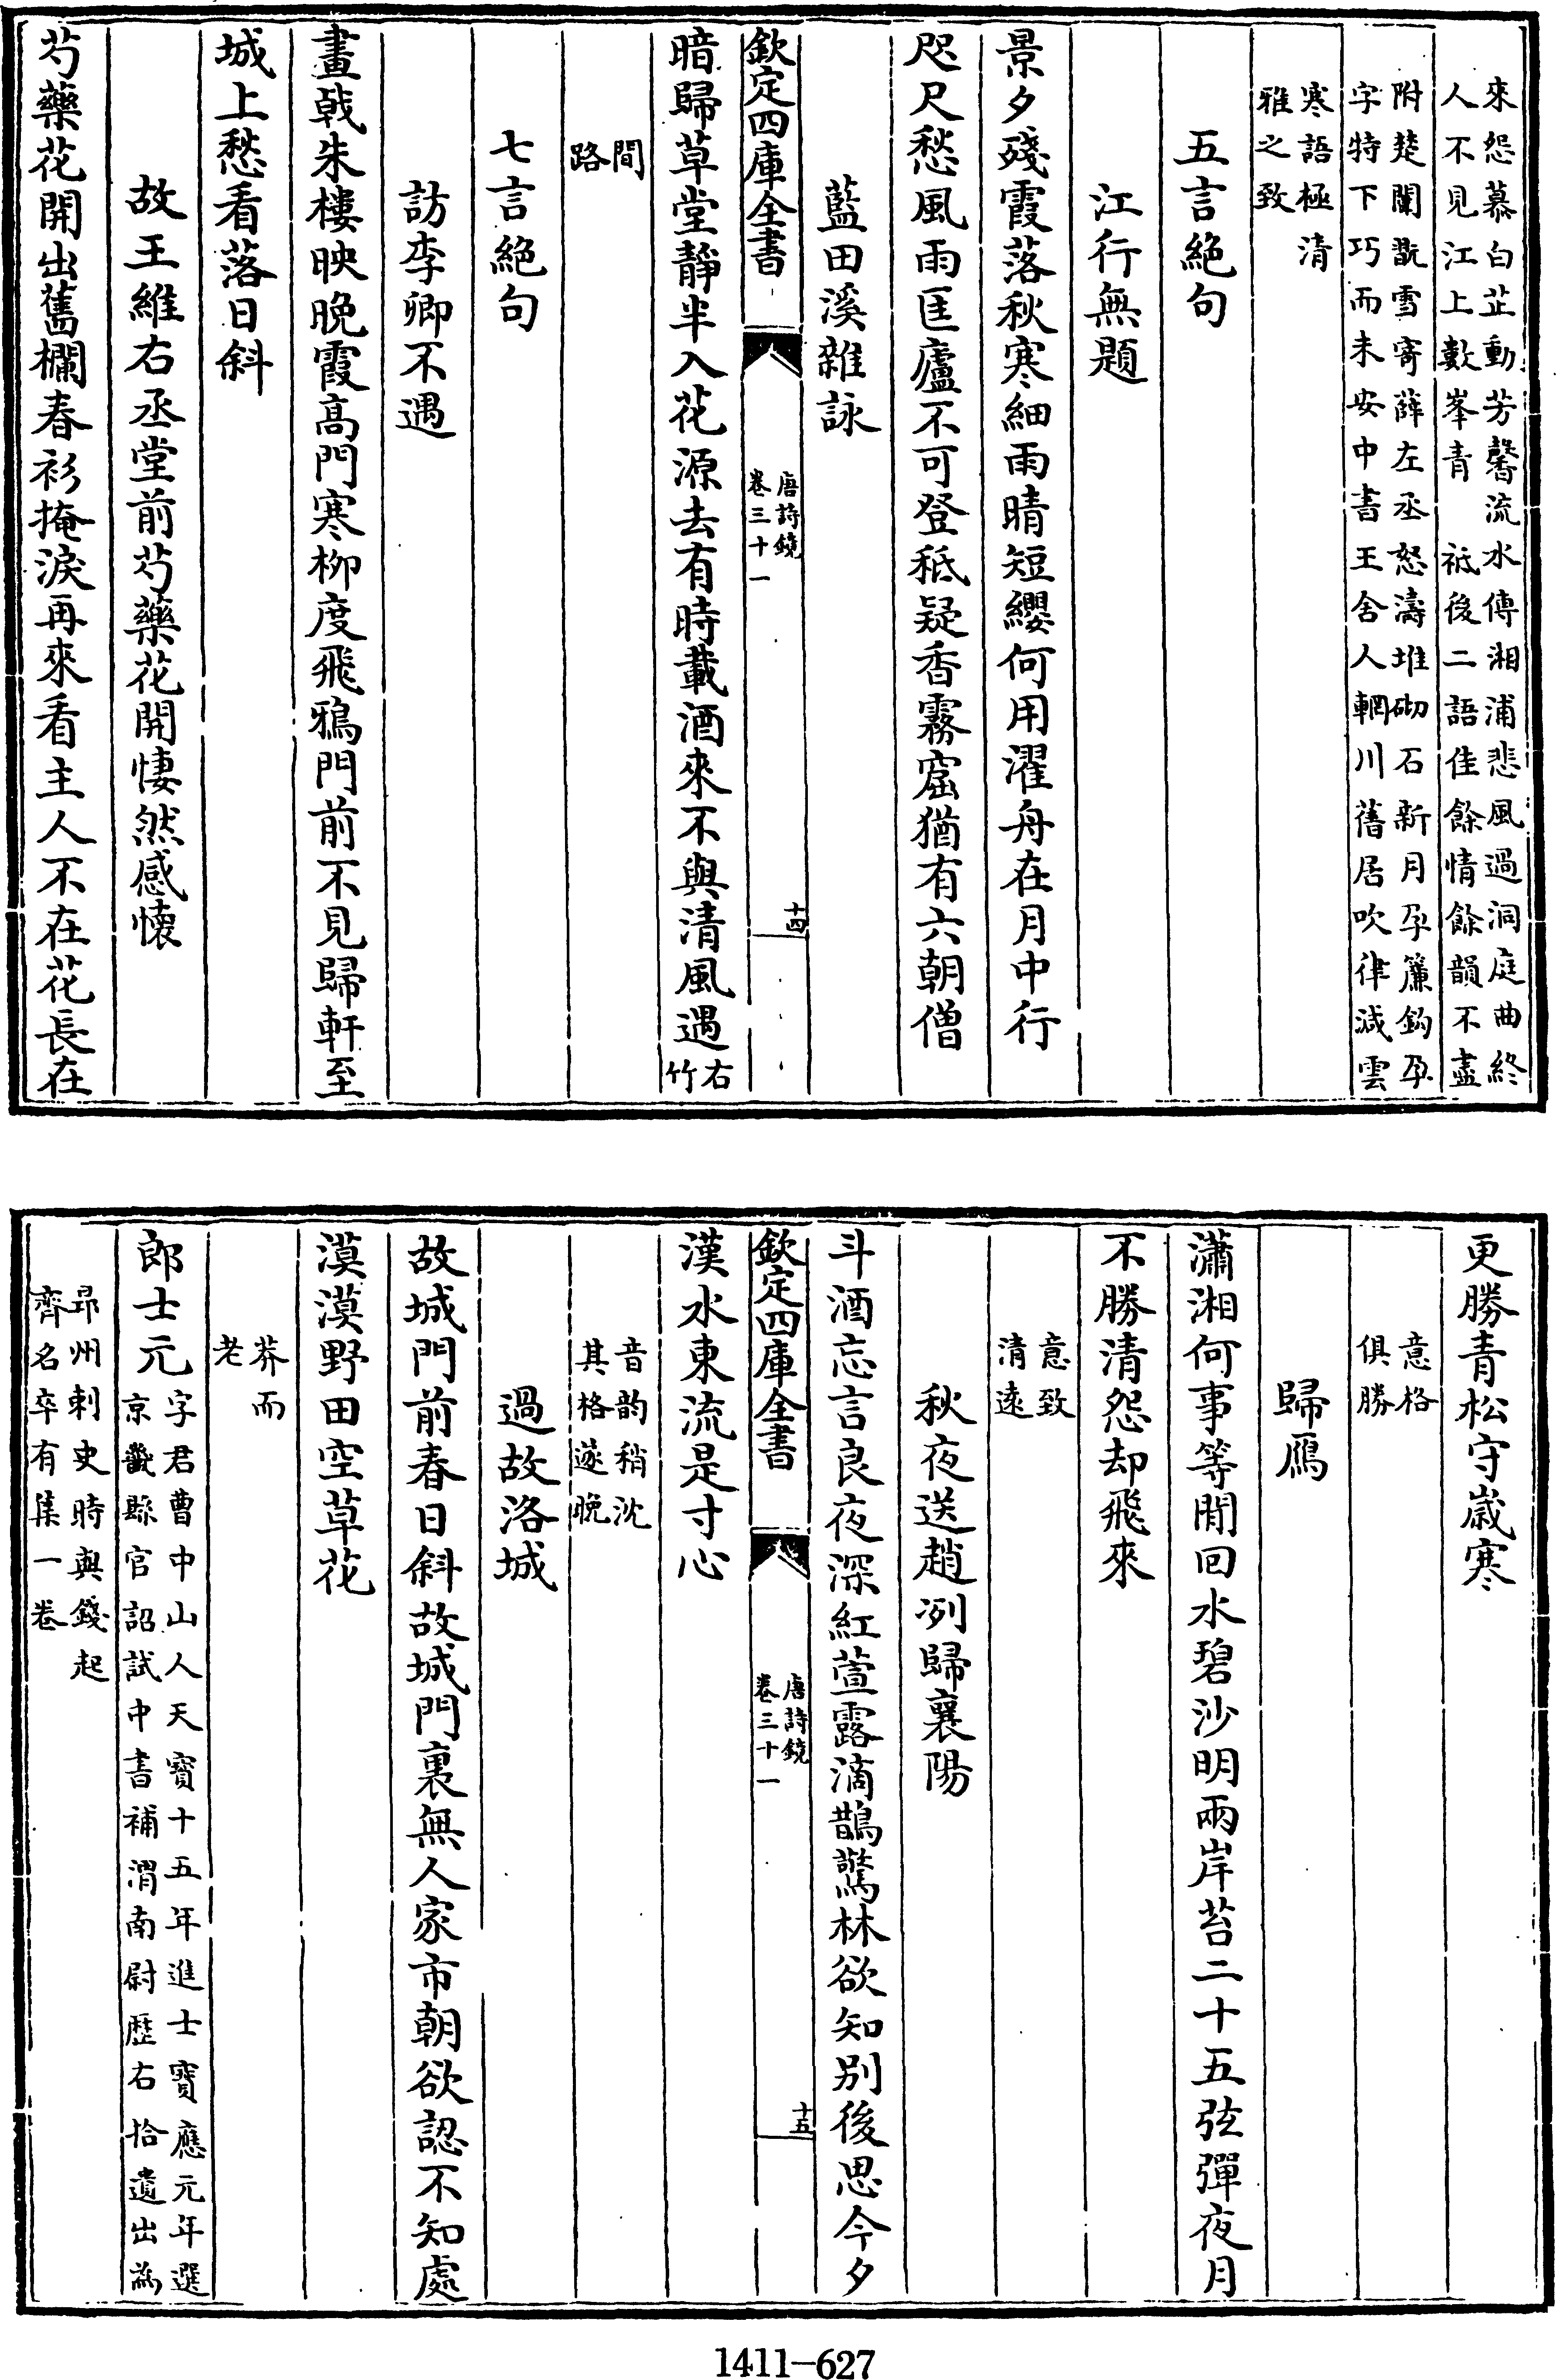 來怨慕白芷動芳馨流水傳湘浦悲風過洞庭曲終
人不見江上數峯青　祗後二語佳餘情餘韻不盡
附楚闈翫雪寄薛左丞怒濤堆砌石新月孕簾鈎孕
字特下巧而未安中書王舍人輞川舊居吹律減雲
寒語極清
雅之致
五言絶句
江行無題
景夕殘霞落秋寒細雨晴短纓何用濯舟在月中行
咫尺愁風雨匡廬不可登秪疑香霧窟猶有六朝僧
藍田溪雜詠
欽定四庫全書
唐詩鏡
卷三十一
十四
暗歸草堂靜半入花源去有時載酒來不與清風遇右竹
間路
七言絶句
訪李卿不遇
畫戟朱樓映晚霞高門寒柳度飛鴉門前不見歸軒至
城上愁看落日斜
故王維右丞堂前芍藥花開悽然感懷
芍藥花開出舊欄春衫掩淚再來看主人不在花長在
更勝青松守歲寒
意格
俱勝
歸鴈
瀟湘何事等閒回水碧沙明兩岸苔二十五弦彈夜月
不勝清怨却飛來
意致
清遠
秋夜送趙冽歸襄陽
斗酒忘言良夜深紅萱露滴鵲驚林欲知别後思今夕
欽定四庫全書
唐詩鏡
卷三十一
十五
漢水東流是寸心
音韵稍沈
其格遂晚
過故洛城
故城門前春日斜故城門裏無人家市朝欲認不知處
漠漠野田空草花
莽而
老
郎士元字君曹中山人天寶十五年進士寶應元年選
京畿縣官詔試中書補渭南尉歷右拾遺出為
郢州刺史時與錢起
齊名卒有集一卷
1411—627